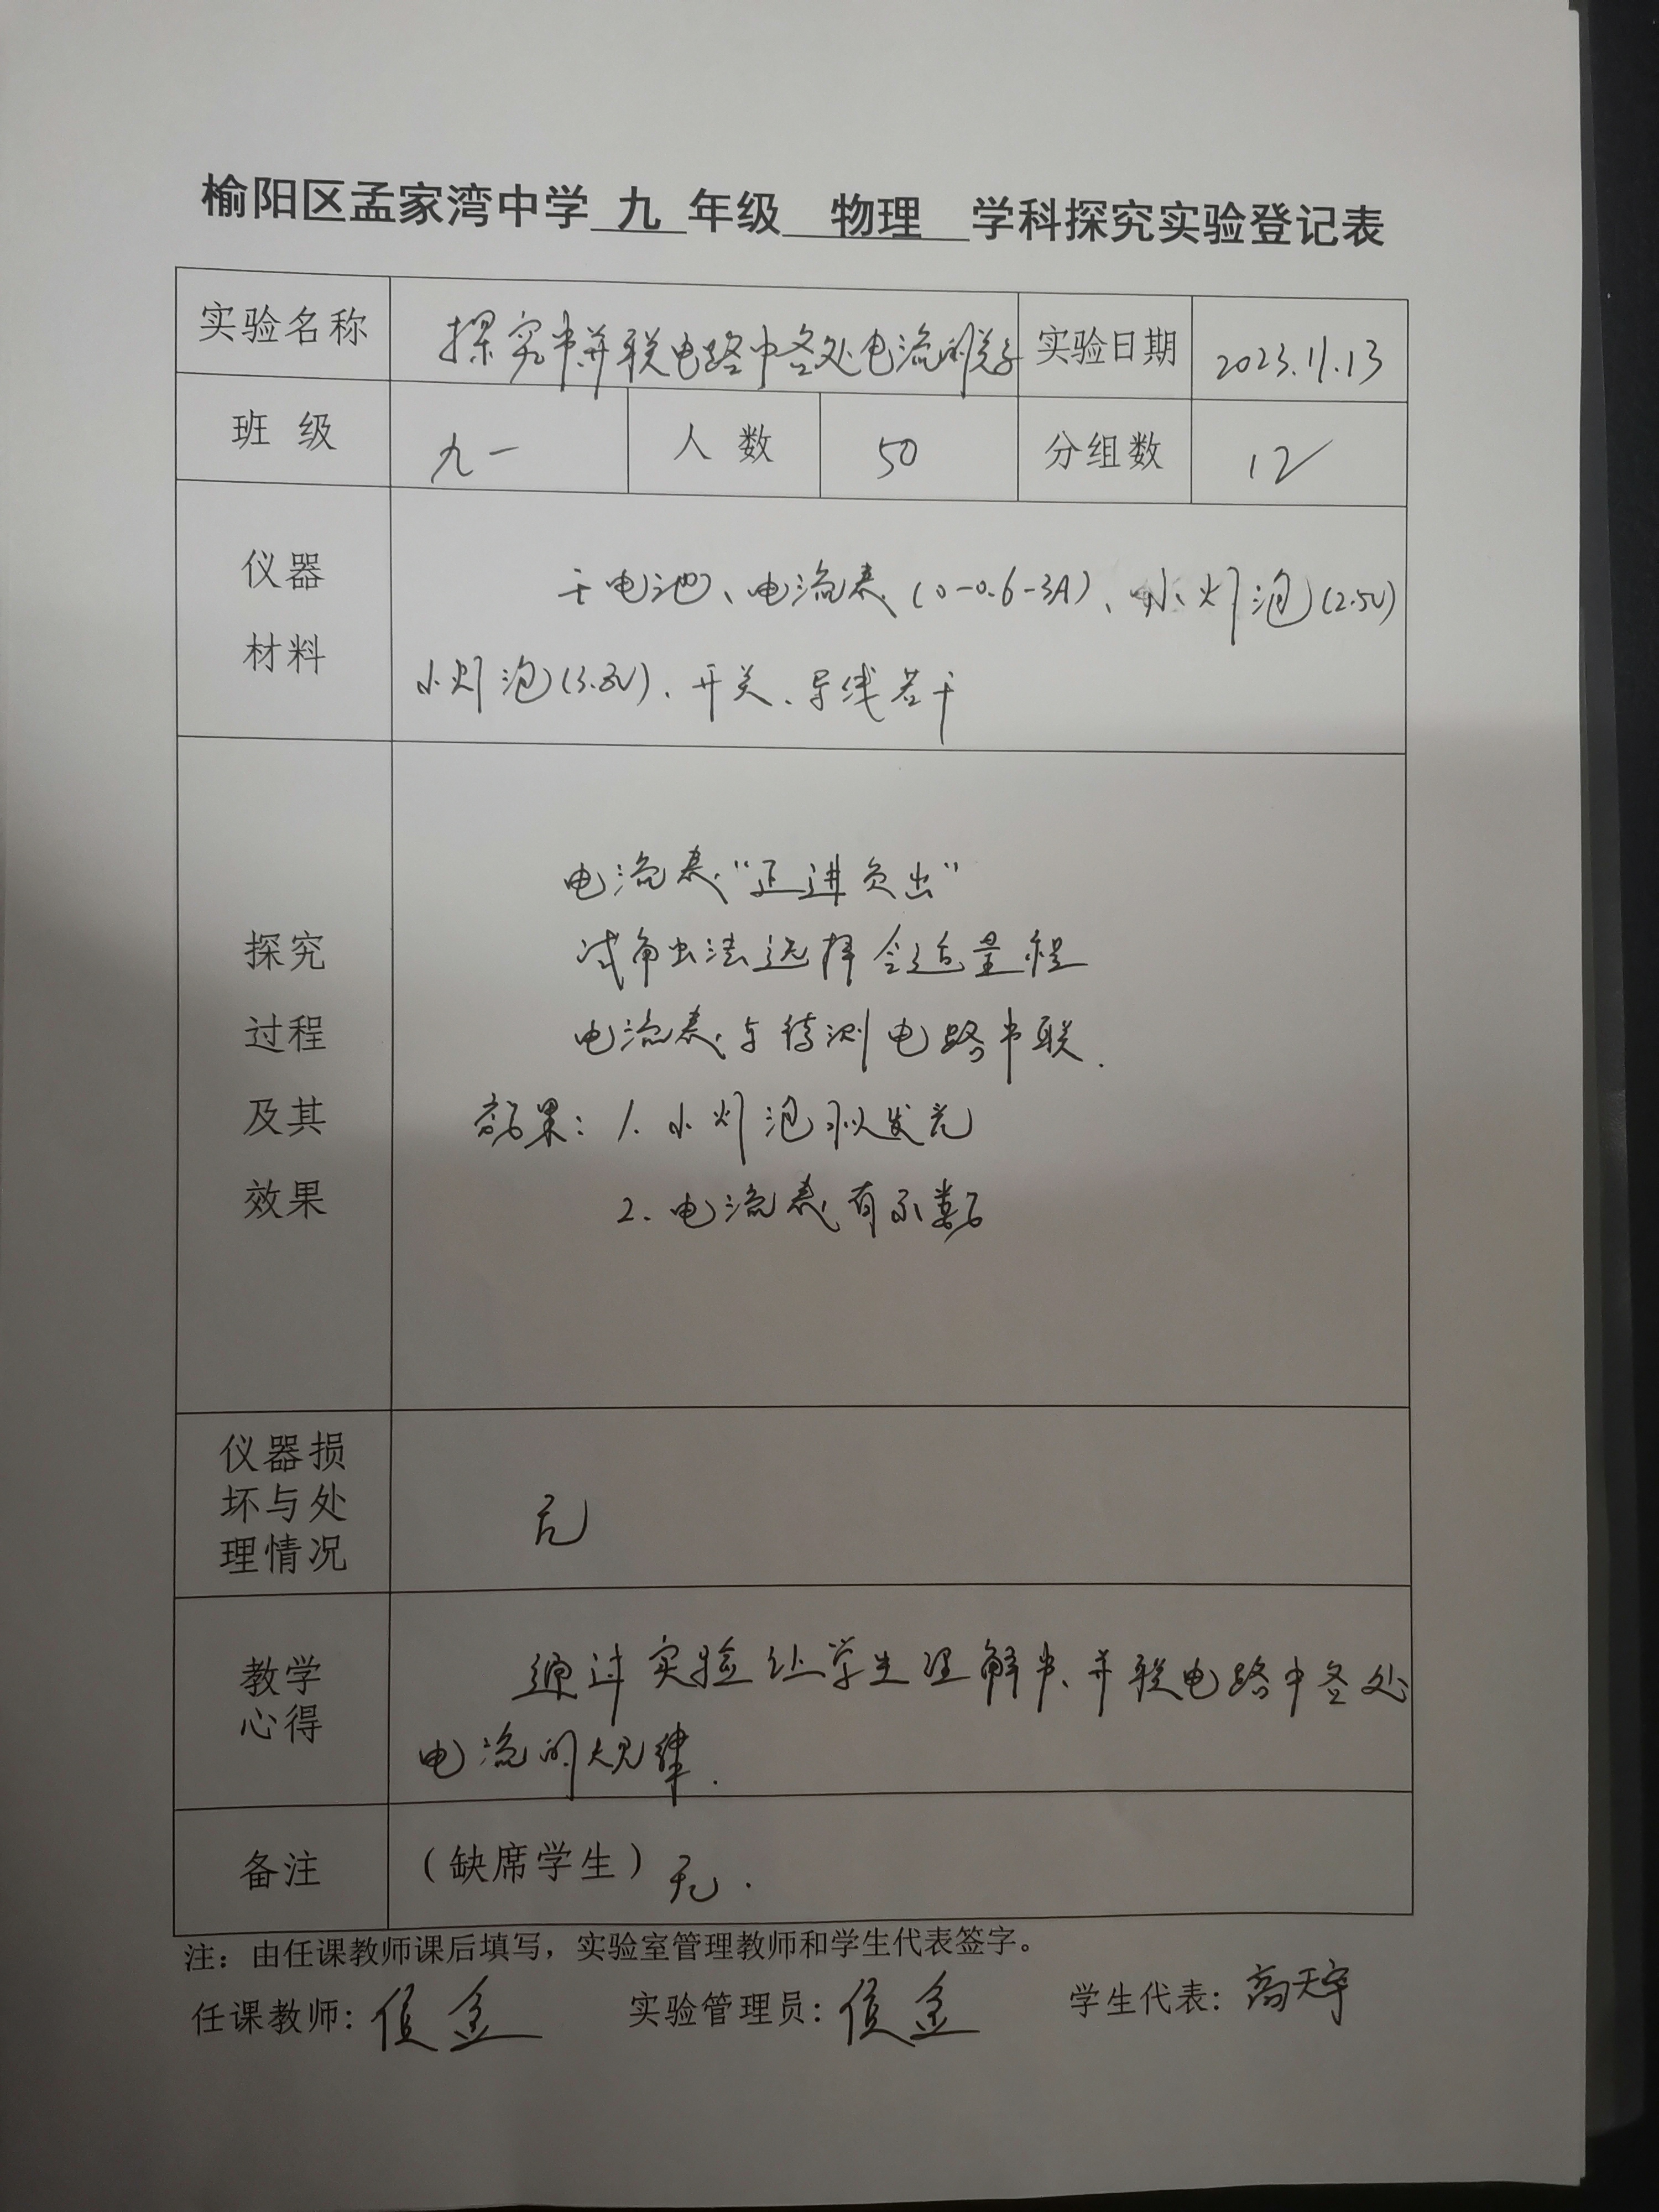 榆阳区孟家湾中学 九 年级 物理 学科探究实验登记表
实验名称 探究串并联电路中各处电流的关系 实验日期 2023.11.13
班 级 九一 人 数 50 分组数 12
仪器
材料
干电池、电流表(0-0.6-3A)、小灯泡(2.5V)
小灯泡(3.8V)、开关、导线若干
探究
过程
及其
效果
电流表"正进负出"
试触法选择合适量程
电流表与待测电路串联.
效果: 1. 小灯泡可以发光
2. 电流表有示数
仪器损
坏与处
理情况
无
教学
心得
通过实验让学生理解串、并联电路中各处
电流的规律.
备注 (缺席学生) 无.
注：由任课教师课后填写，实验室管理教师和学生代表签字。
任课教师: 实验管理员: 学生代表: 高天宇